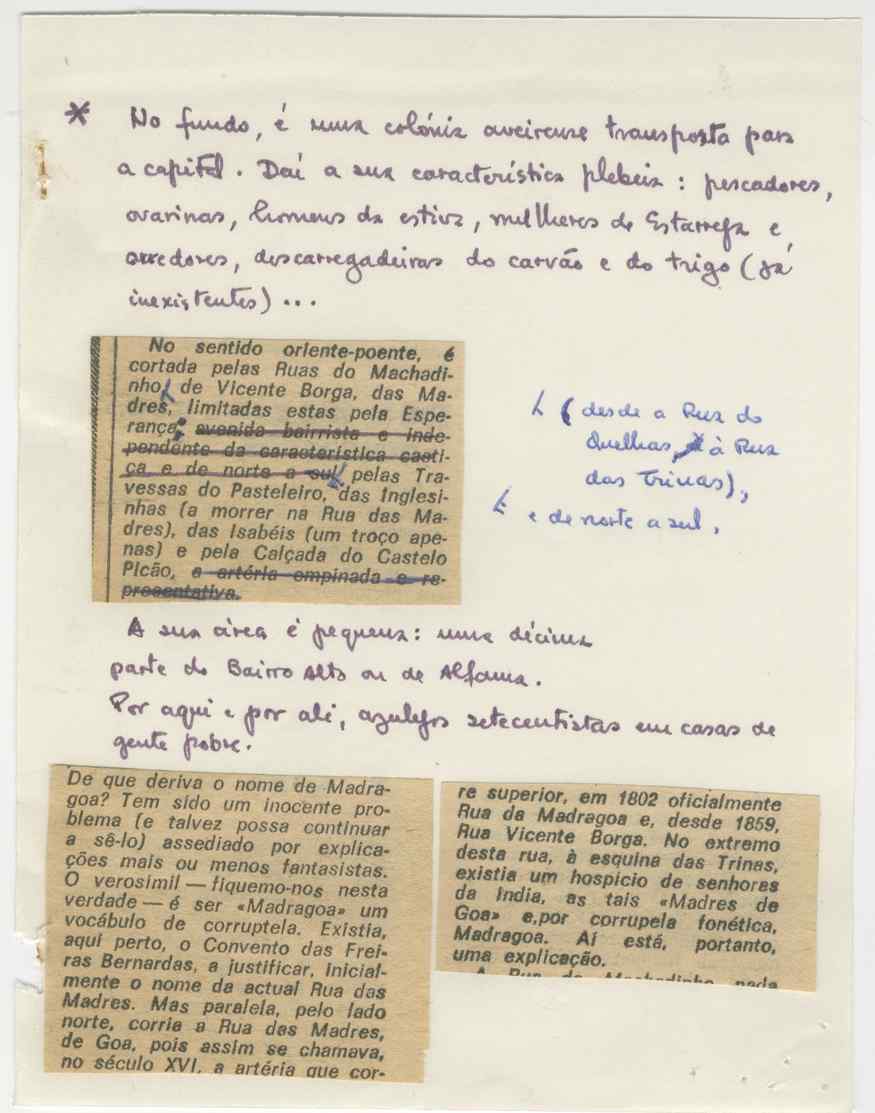 * No fundo, é uma colónia aveirense transposta para
a capital. Daí a sua característica plebeia: pescadores,
ovarinas, homens da estiva, mulheres de Estarreja e
arredores, descarregadeiras do carvão e do trigo (já
inexistentes)...
No sentido oriente-poente, é
cortada pelas Ruas do Machadi-
nho, de Vicente Borga, das Ma-
dres, limitadas estas pela Espe-
rança; avenida bairrista e inde-
pendente da característica casti-
ça e de norte a sul pelas Tra-
vessas do Pasteleiro, das Inglesi-
nhas (a morrer na Rua das Ma-
dres), das Isabéis (um troço ape-
nas) e pela Calçada do Castelo
Picão, a artéria empinada e re-
presentativa.
(desde a Rua do
Quelhas, à Rua
das Trinas),
e de norte a sul,
A sua área é pequena: uma décima
parte do Bairro Alto ou de Alfama.
Por aqui e por ali, azulejos setecentistas em casas de
gente pobre.
De que deriva o nome de Madra-
goa? Tem sido um inocente pro-
blema (e talvez possa continuar
a sê-lo) assediado por explica-
ções mais ou menos fantasistas.
O verosimil — fiquemo-nos nesta
verdade — é ser «Madragoa» um
vocábulo de corruptela. Existia,
aqui perto, o Convento das Frei-
ras Bernardas, a justificar, inicial-
mente o nome da actual Rua das
Madres. Mas paralela, pelo lado
norte, corria a Rua das Madres,
de Goa, pois assim se chamava,
no século XVI, a artéria que cor-
re superior, em 1802 oficialmente
Rua da Madragoa e, desde 1859,
Rua Vicente Borga. No extremo
desta rua, à esquina das Trinas,
existia um hospicio de senhoras
da India, as tais «Madres de
Goa» e, por corrupela fonética,
Madragoa. Aí está, portanto,
uma explicação.
A Rua do Machadinho nada